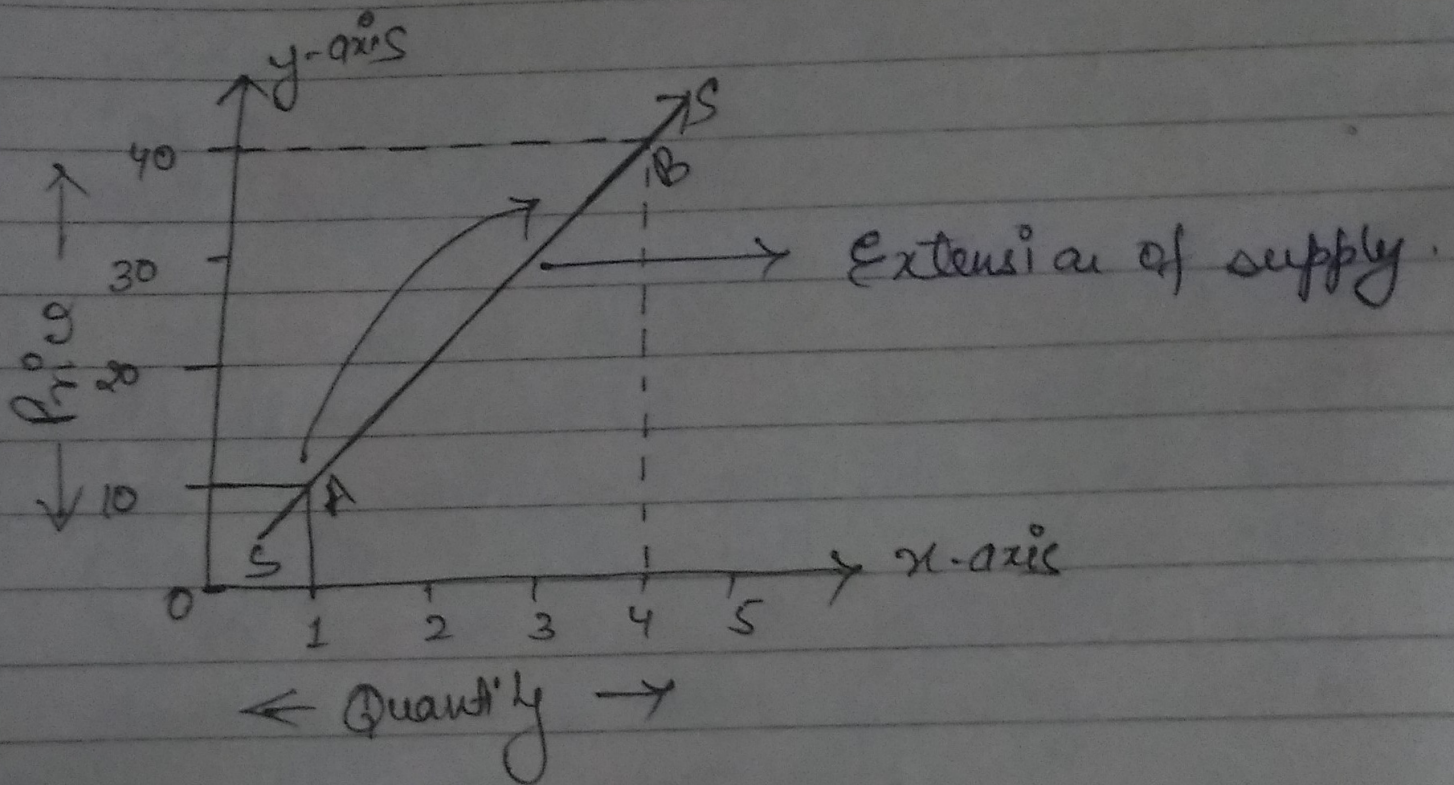 y-axis
S
40
B
30
Extension of supply.
Price
20
10
A
S
x-axis
0
1 2 3 4 5
← Quantity →